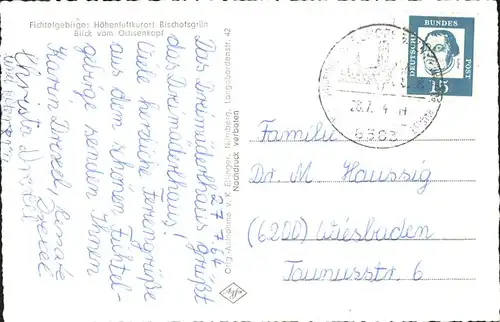 Fichtelgebirge: Höhenluftkurort Bischofsgrün
Blick vom Ochsenkopf
27.7.64
Das Dreimüllerhaus grüßt
das Dreimüllerhaus!
Viele herzliche Feriengrüße
aus dem schönen Fichtel-
gebirge senden Ihnen
Karin Drexel, Renate
Drexel
Christa Drexel
Orig.-Aufnahme v. K. Nürnberg, Langobardenstr. 42
Nachdruck verboten
DEUTSCHE BUNDESPOST
15
28.7. 4
8583
Familie
Dr. M Haussig
(6200) Wiesbaden
Taunusstr. 6